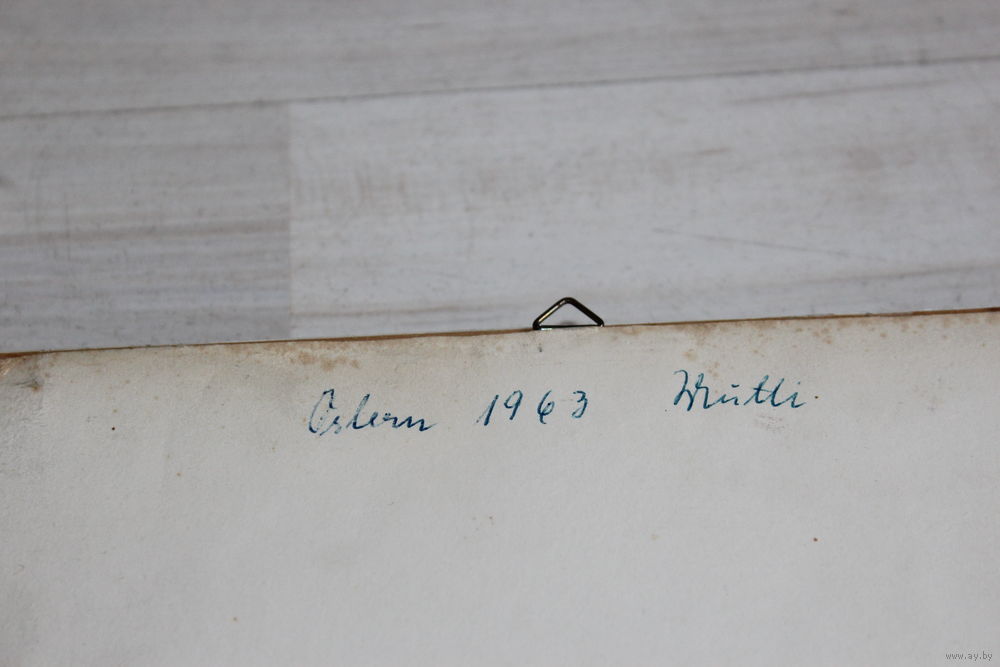 Ostern 1963 Mutti
www.ay.by